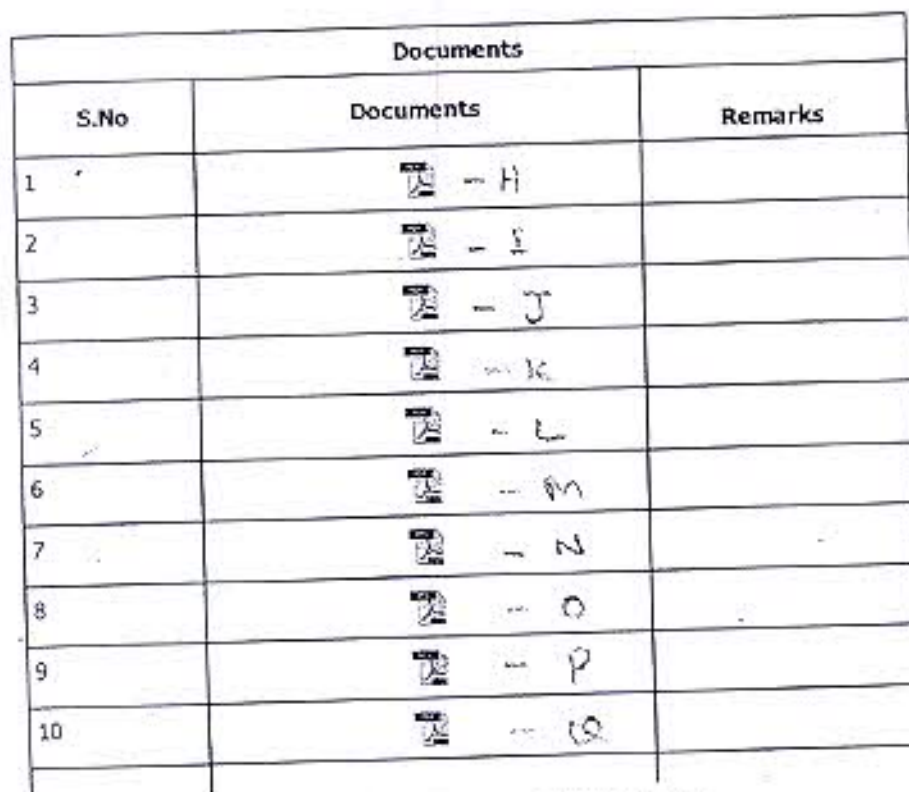 Documents
S.No Documents Remarks
1 - H
2 - I
3 - J
4 - K
5 - L
6 - M
7 - N
8 - O
9 - P
10 - Q